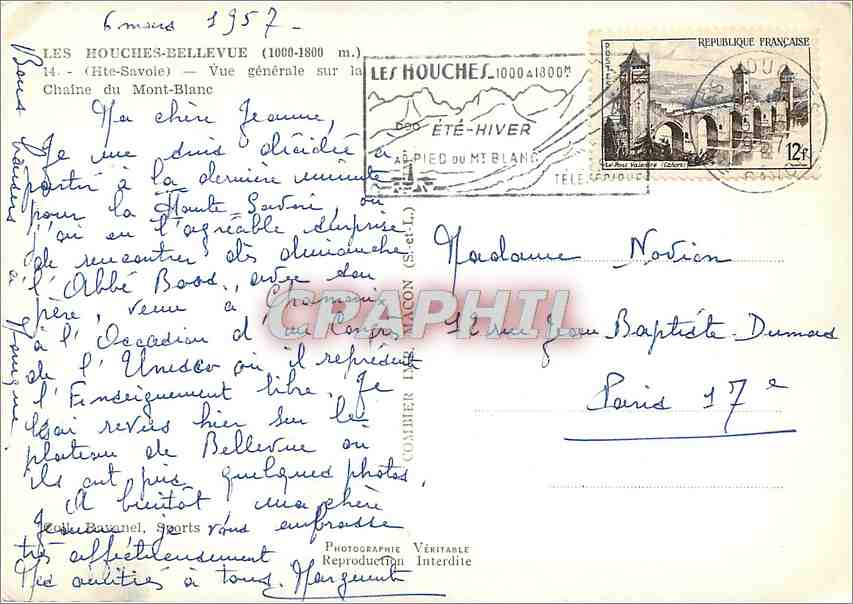 6 mars 1957 -
LES HOUCHES-BELLEVUE (1000-1800 m.)
14. - (Hte-Savoie) — Vue générale sur la
Chaîne du Mont-Blanc
Ma chère Jeanne,
Je me suis décidée à
partir à la dernière minute
pour la Haute Savoie, où
j'ai eu l'agréable surprise
de rencontrer dès dimanche
l'Abbé avec son
père, venu à Chamonix
à l'Occasion d'un Congrès
de l'Unesco où il représente
l'Enseignement libre. Je
les ai revus hier sur le
plateau de Bellevue où
ils ont pris quelques photos.
A bientôt ma chère
Jeanne je vous embrasse
très affectueusement
Mes amitiés à tous. Marguerite
Bons baisers à
Coll. Ravanel, Sports
PHOTOGRAPHIE VÉRITABLE
Reproduction Interdite
COMBIER IMP. MACON (S.-et-L.)
LES HOUCHES 1000 A 1800M
ÉTÉ-HIVER
AU PIED DU MT BLANC
TÉLÉFÉRIQUE
RÉPUBLIQUE FRANÇAISE
POSTES
Le Pont Valentré (Cahors)
12F
Madame
12 rue Jean Baptiste-Dumas
Paris 17e
CPAPHIL